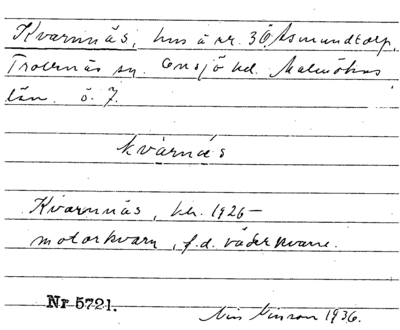 Kvarnnäs, hus å nr. 36 Asmundtorp,
Trollenäs sn. Onsjö hd. Malmöhus
län. ö. 7.
kvàrnǽs
Kvarnnäs, bl. 1926 –
motorkvarn, f.d. väderkvarn.
Nr 5721.
Nils Nilsson 1936.